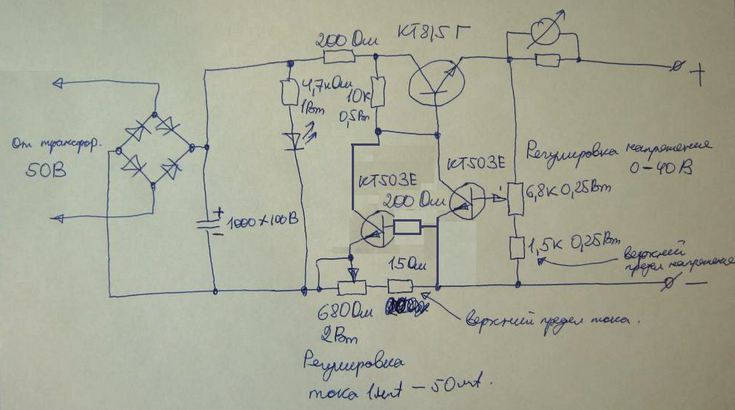 200 Ом
КТ815Г
4,7кОм
1Вт
10к
0,5Вт
+
От трансфор.
50В
КТ503Е
КТ503Е
200 Ом
Регулировка напряжения
0-40В
6,8К 0,25Вт
+
1000×100В
−
15Ом
1,5к 0,25Вт
верхний
предел напряжения
−
680Ом
2Вт
верхний предел тока.
Регулировка
тока 1мА - 50мА.